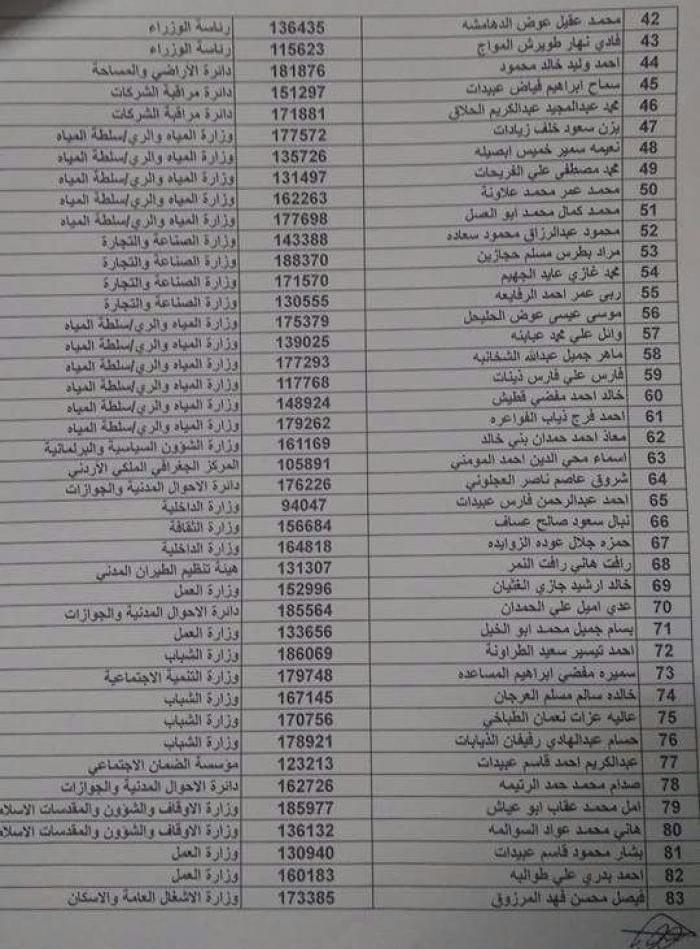 42 محمد عقيل عوض الدهامشه 136435 رئاسة الوزراء
43 فادي نهار طويرش المواج 115623 رئاسة الوزراء
44 احمد وليد خالد محمود 181876 دائرة الأراضي والمساحة
45 سماح ابراهيم فياض عبيدات 151297 دائرة مراقبة الشركات
46 محمد عبدالمجيد عبدالكريم الحلاق 171881 دائرة مراقبة الشركات
47 يزن سعود خلف زيادات 177572 وزارة المياه والري/سلطة المياه
48 نعيمه سمير خميس ابصيله 135726 وزارة المياه والري/سلطة المياه
49 محمد مصطفى علي الفريحات 131497 وزارة المياه والري/سلطة المياه
50 محمد عمر محمد علاونة 162263 وزارة المياه والري/سلطة المياه
51 محمد كمال محمد ابو العسل 177698 وزارة المياه والري/سلطة المياه
52 محمود عبدالرزاق محمود سعاده 143388 وزارة الصناعة والتجارة
53 مراد بطرس مسلم حجازين 188370 وزارة الصناعة والتجارة
54 محمد غازي عايد الجهيم 171570 وزارة الصناعة والتجارة
55 ربى عمر احمد الرفايعه 130555 وزارة الصناعة والتجارة
56 موسى عيسى عوض الحليحل 175379 وزارة المياه والري/سلطة المياه
57 وائل علي محمد عبابنه 139025 وزارة المياه والري/سلطة المياه
58 ماهر جميل عبدالله الشخانبه 177293 وزارة المياه والري/سلطة المياه
59 فارس علي فارس ذينات 117768 وزارة المياه والري/سلطة المياه
60 خالد احمد مفضي قطيش 148924 وزارة المياه والري/سلطة المياه
61 احمد فرج ذياب الفواعره 179262 وزارة المياه والري/سلطة المياه
62 معاذ احمد حمدان بني خالد 161169 وزارة الشؤون السياسية والبرلمانية
63 اسماء محي الدين احمد المومني 105891 المركز الجغرافي الملكي الأردني
64 شروق عاصم ناصر العجلوني 176226 دائرة الاحوال المدنية والجوازات
65 احمد عبدالرحمن فارس عبيدات 94047 وزارة الداخلية
66 نبال سعود صالح عساف 156684 وزارة الثقافة
67 حمزه جلال عوده الزوايده 164818 وزارة الداخلية
68 رافت هاني رافت النمر 131307 هيئة تنظيم الطيران المدني
69 خالد ارشيد جازي الغثيان 152996 وزارة العمل
70 عدي اميل علي الحمدان 185564 دائرة الاحوال المدنية والجوازات
71 بسام جميل محمد ابو الخيل 133656 وزارة العمل
72 احمد تيسير سعيد الطراونة 186069 وزارة الشباب
73 سميره مفضي ابراهيم المساعده 179748 وزارة التنمية الاجتماعية
74 خالده سالم مسلم العرجان 167145 وزارة الشباب
75 عاليه عزات نعمان الطباخي 170756 وزارة الشباب
76 حسام عبدالهادي رفيفان الذيابات 178921 وزارة الشباب
77 عبدالكريم احمد قاسم عبيدات 123213 مؤسسة الضمان الاجتماعي
78 صدام محمد حمد الرتيمه 162726 دائرة الاحوال المدنية والجوازات
79 امل محمد عقاب ابو عياش 185977 وزارة الاوقاف والشؤون والمقدسات الاسلام
80 هاني محمد عواد السوالمه 136132 وزارة الاوقاف والشؤون والمقدسات الاسلام
81 بشار محمود قاسم عبيدات 130940 وزارة العمل
82 احمد بدري علي طوالبه 160183 وزارة العمل
83 فيصل محسن فهد المرزوق 173385 وزارة الاشغال العامة والاسكان